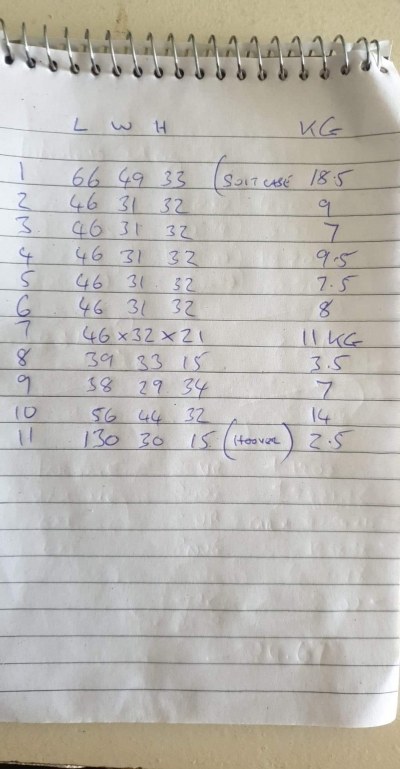 L W H KG
1 66 49 33 (SUITCASE 18.5
2 46 31 32 9
3 46 31 32 7
4 46 31 32 9.5
5 46 31 32 7.5
6 46 31 32 8
7 46 x 32 x 21 11 KG
8 39 33 15 3.5
9 38 29 34 7
10 56 44 32 14
11 130 30 15 (Hoover) 2.5